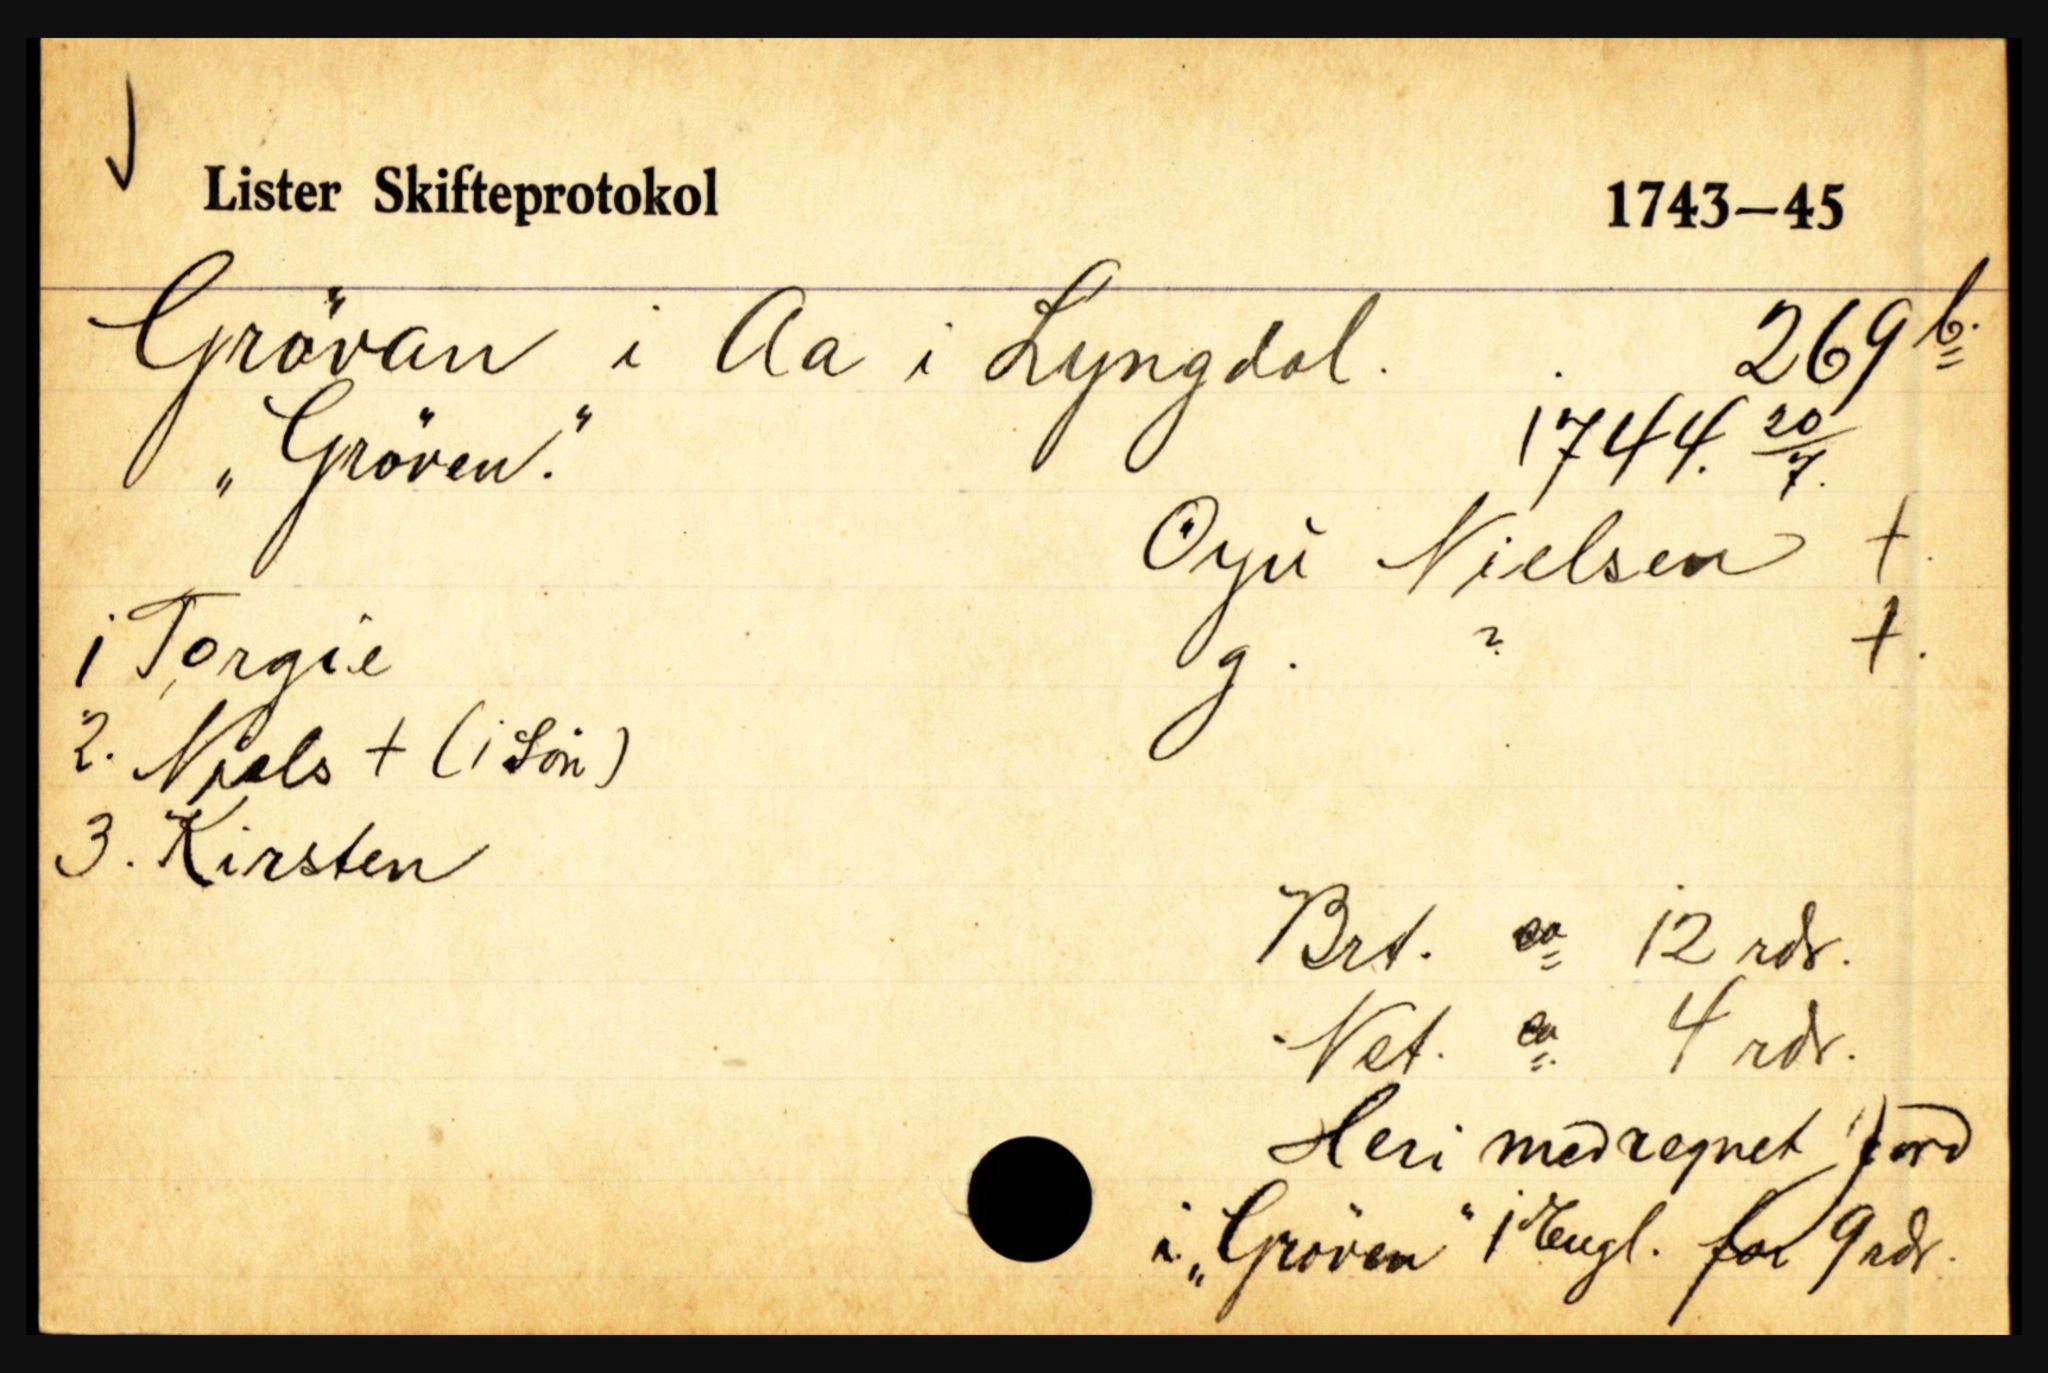 Lister Skifteprotokol 1743–45
Grövan i Aa i Lyngdal. 269 b.
„Gröven." 1744. 20/7.
Öyü Nielsen +.
1 Torgie g. ? +.
2. Niels + (1 Sön)
3. Kirsten
Brt. ca 12 rdr.
Net. ca. 4 rdr.
Heri medregnet Jord
i „Gröven" 1 Engl. for 9 rdr.